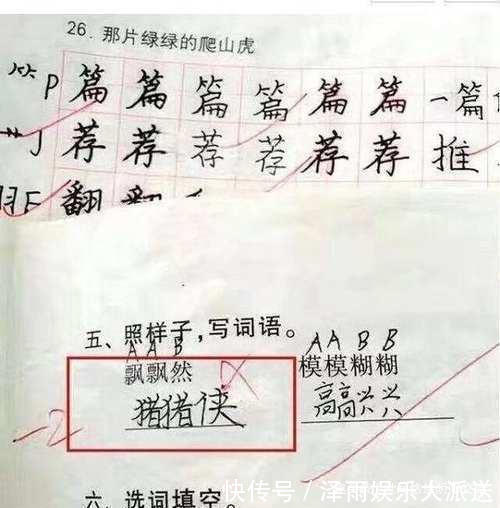 26. 那片绿绿的爬山虎
⺮ P 篇 篇 篇 篇 篇 篇 一篇
艹 J 荐 荐 荐 荐 荐 荐 推
羽 F 翻 翻
五、照样子,写词语。
A A B A A B B
飘飘然 模模糊糊
猪猪侠 高高兴兴
-2
六、选词填空。
快传号/泽雨娱乐大派送